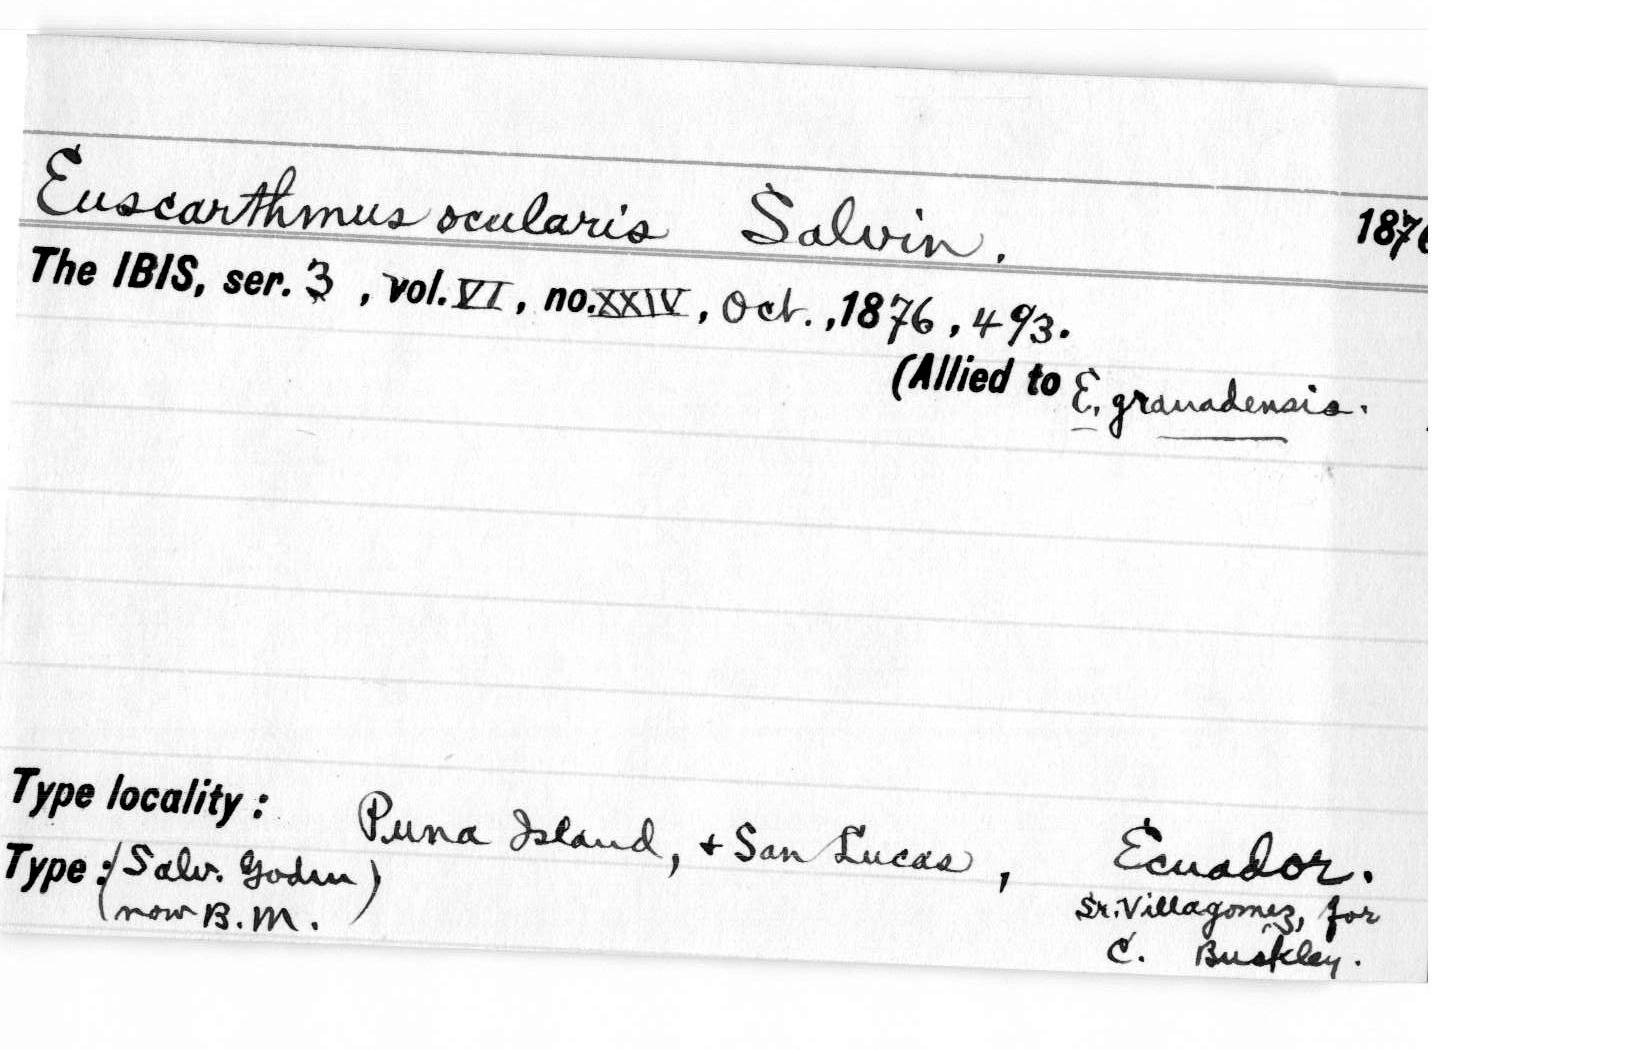 Euscarthmus ocularis Salvin. 1876
The IBIS, ser. 3, vol. VI, no. XXIV, Oct., 1876, 493.
(Allied to E. granadensis.
Type locality: Puna Island, + San Lucas, Ecuador.
Type: (Salv. Godm)
(now B.M.
Sr. Villagomez, for
C. Buckley.